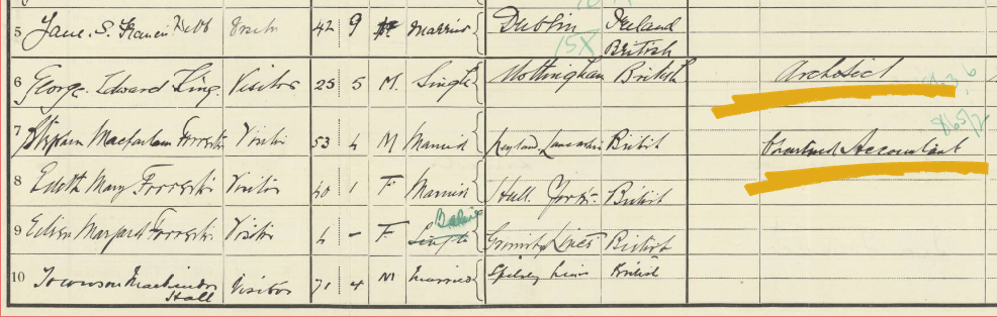 5 Jane. S. Francis Webb Visitor 42 9 F Married Dublin Ireland
15X British
6 George Edward King. Visitor 25 5 M. Single Nottingham British Architect
7 Stephen Macfarlam Forrester Visitor 53 4 M Married Leyland, Lancashire British Chartered Accountant 865/2
8 Edith Mary Forrester Visitor 40 1 F. Married Hull. Yorks. British
9 Eileen Margaret Forrester Visitor 4 – F. Single Grimsby Lincs British
10 Townson Visitor 71 4 M Married Spilsby Lincs British
Hall